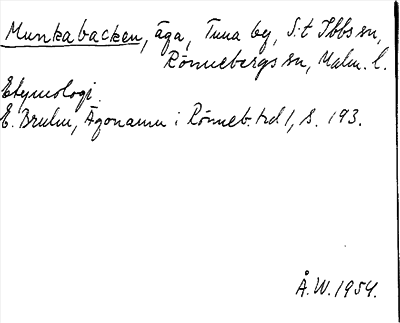 Munkabacken, äga, Tuna by, S:t Ibbs sn,
Rönnebergs sn, Malm. l.
Etymologi.
E. Bruhn, Ägonamn i Rönneb. hd 1, s. 193.
Å.W. 1954.